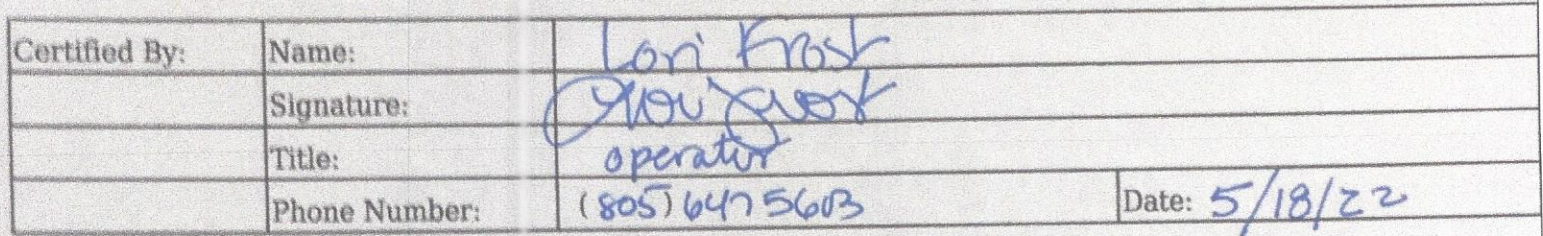 Certified By: Name: Lori Frost
Signature: Lori Frost
Title: operator
Phone Number: (805) 647 5603 Date: 5/18/22